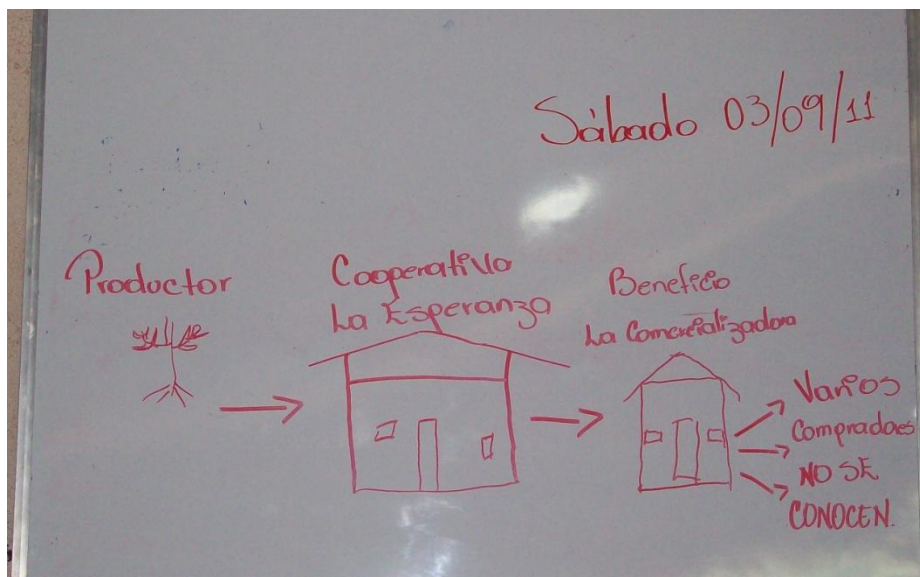 Sábado 03/09/11
Productor
Cooperativa
La Esperanza
Beneficio
La Comercializadora
Varios
Compradoes
NO SE
CONOCEN.